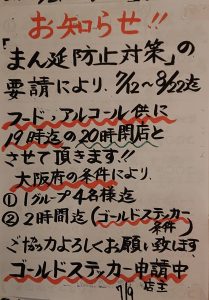 お知らせ!!
「まん延防止対策」の
要請により、7/12〜8/22迄
フード・アルコール供に
19時迄の20時閉店と
させて頂きます!!
大阪府の条件により、
①1グループ4名様迄
②2時間迄(ゴールドステッカー
条件)
ご協力よろしくお願い致します
ゴールドステッカー申請中
7/9 店主